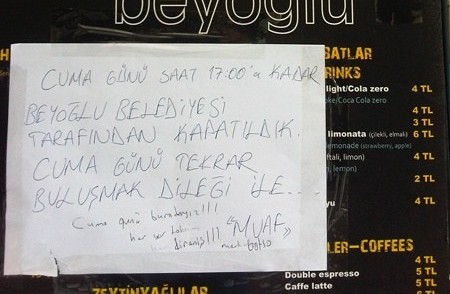 beyoğlu
CUMA GÜNÜ SAAT 17:00'a KADAR
BEYOĞLU BELEDİYESİ
TARAFINDAN KAPATILDIK.
CUMA GÜNÜ TEKRAR
BULUŞMAK DİLEĞİ İLE....
Cuma günü buradayız!!!
her yer
direniş!!!
"MUAF"
SATLAR
RINKS
light/Coca Cola zero 4 TL
oke/Coca Cola zero
4 TL
3 TL
limonata (çilekli, elmalı) 6 TL
lemonade (strawberry, apple)
ftali, limon) 4 TL
lemon)
2 TL
yu 4 TL
LER-COFFEES
4 TL
Double espresso 5 TL
Caffe latte 5 TL
6 TL
ZEYTİNYAĞLILAR